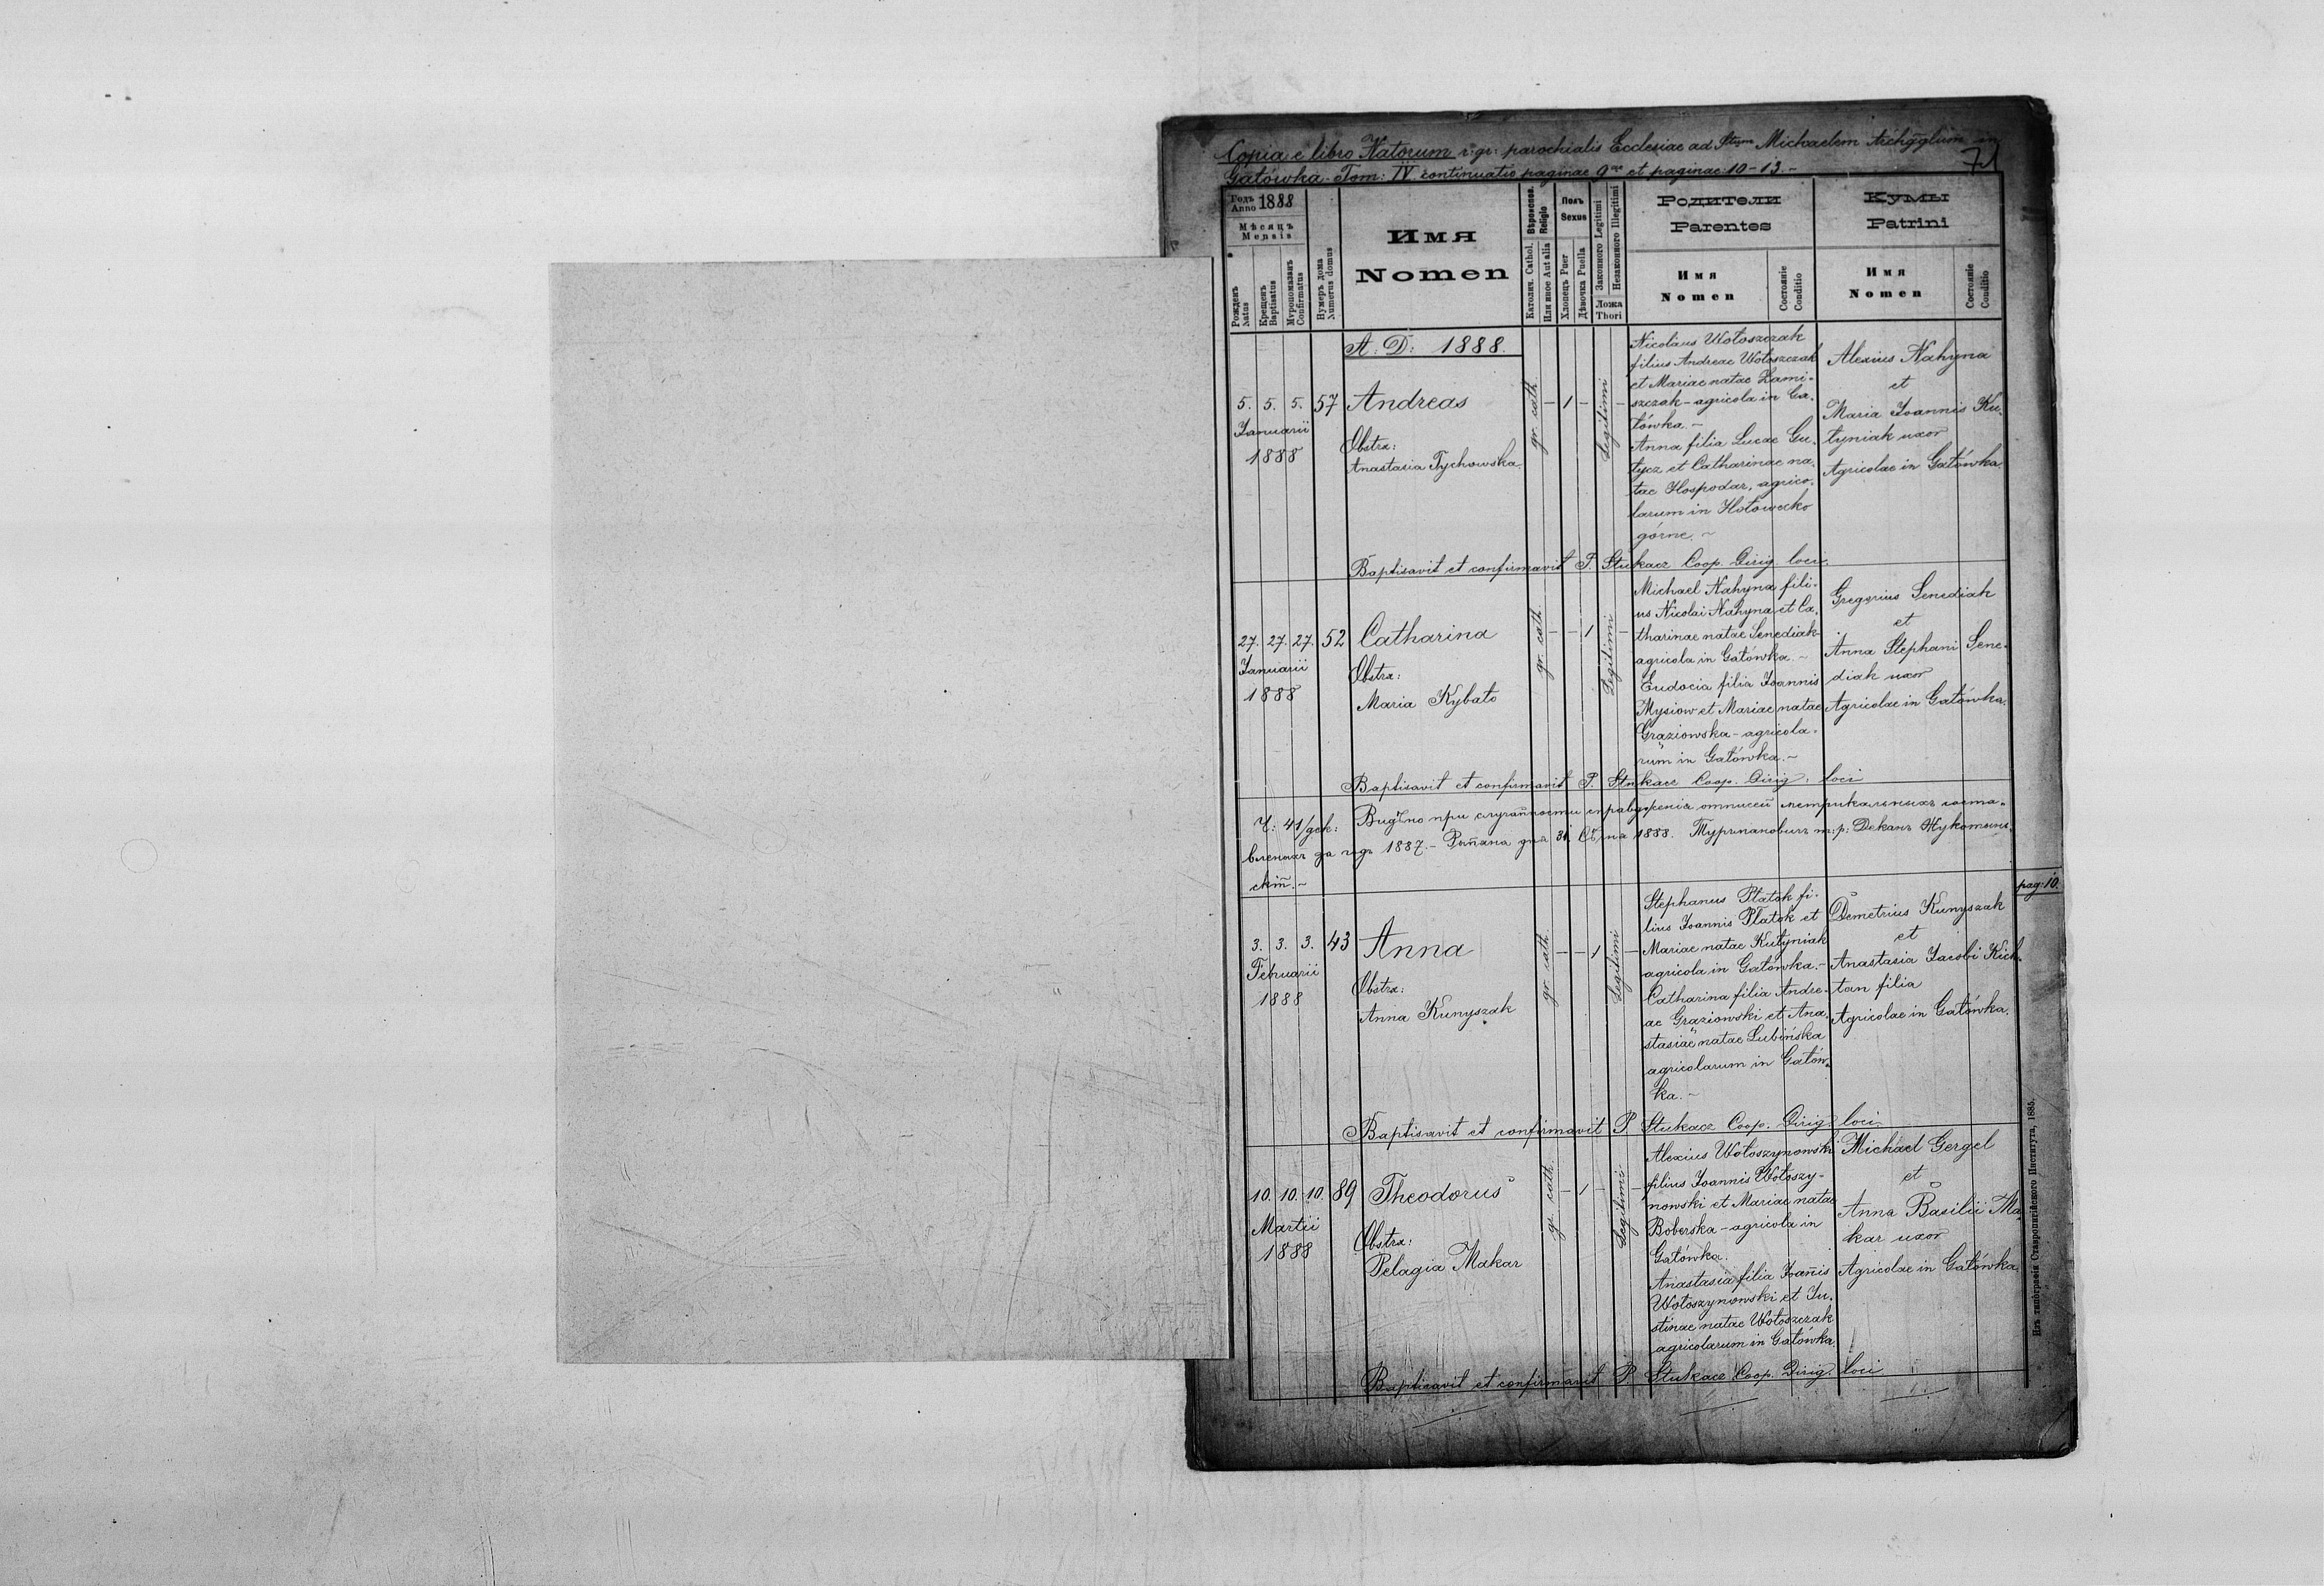 Copia e libro Natorum r: gr: parochialis Ecclesiae ad Stum Michaelem Archgglum in
Gatówka. Tom: IV. continuatio paginae 9nae et paginae 10-13.-
71
Годъ
Anno 1888
Мѣсяцъ
Mensis
Рожденъ
Natus
Крещенъ
Baptisatus
Мѵропомазанъ
Confirmatus
Нумеръ дома
Numerus domus
Имя
Nomen
Вѣроиспов.
Religio
Католич. Cathol.
Или иное Aut alia
Полъ
Sexus
Хлопецъ Puer
Дѣвочка Puella
Законного Legitimi
Незаконного Illegitimi
Ложа
Thori
Родители
Parentes
Имя
Nomen
Состояніе
Conditio
Кумы
Patrini
Имя
Nomen
Состояніе
Conditio
A: D: 1888.
5. 5. 5. 57
Januarii
1888
Andreas
Obstx:
Anastasia Tychowska
gr. cath. - 1 - Legitimi -
Nicolaus Wołoszczak
filius Andreae Wołoszczak
et Mariae natae Zami-
szczak - agricola in Ga-
tówka. -
Anna filia Lucae Gu-
tycz et Catharinae na-
tae Hospodar, agrico-
larum in Hołowecko
górne. ~
Alexius Nahyna
et
Maria Joannis Ku-
tyniak uxor
Agricolae in Gatówka.
Baptisavit et confirmavit P. Stukacz Coop. Dirig. loci.
27. 27. 27. 52
Januarii
1888
Catharina
Obstx:
Maria Kybato
gr. cath. - - 1 Legitimi -
Michael Nahyna fili-
us Nicolai Nahyna et Ca-
tharinae natae Senediak
agricola in Gatówka. ~
Eudocia filia Joannis
Mysiow et Mariae natae
Grąziowska - agricola-
rum in Gatówka. ~
Gregorius Senediak
et
Anna Stephani Sene-
diak uxor
Agricolae in Gatówka.
Baptisavit et confirmavit P. Stukacz Coop. Dirig: loci
Ч: 41/дек: Видѣно при случайности справдженія отписей метрикальныхъ соста-
вленыхъ за годъ 1887. - дня 31. Сѣчня 1888. m: p: Деканъ Жукотын-
скій. ~
pag: 10.
3. 3. 3. 43
Februarii
1888
Anna
Obstx:
Anna Kunyszak
gr. cath. - - 1 Legitimi -
Stephanus Płatok fi-
lius Joannis Płatok et
Mariae natae Kutyniak
agricola in Gatówka. -
Catharina filia Andre-
ae Grąziowski et Ana-
stasiae natae Lubińska
agricolarum in Gatów-
ka. ~
Demetrius Kunyszak
et
Anastasia Jacobi Kich-
tan filia
Agricolae in Gatówka.
Baptisavit et confirmavit P. Stukacz Coop. Dirig. loci
10. 10. 10. 89
Martii
1888
Theodorus
Obstx:
Pelagia Makar
gr. cath. - 1 - Legitimi -
Alexius Wołoszynowski
filius Joannis Wołoszy-
nowski et Mariae natae
Boberska - agricola in
Gatówka.
Anastasia filia Joañis
Wołoszynowski et Ju-
stinae natae Wołoszczak
agricolarum in Gatówka
Michael Gergel
et
Anna Basilii Ma-
kar uxor
Agricolae in Gatówka.
Baptisavit et confirmavit P. Stukacz Coop. Dirig. loci
Изъ типографіи Ставропигійского Института, 1885.